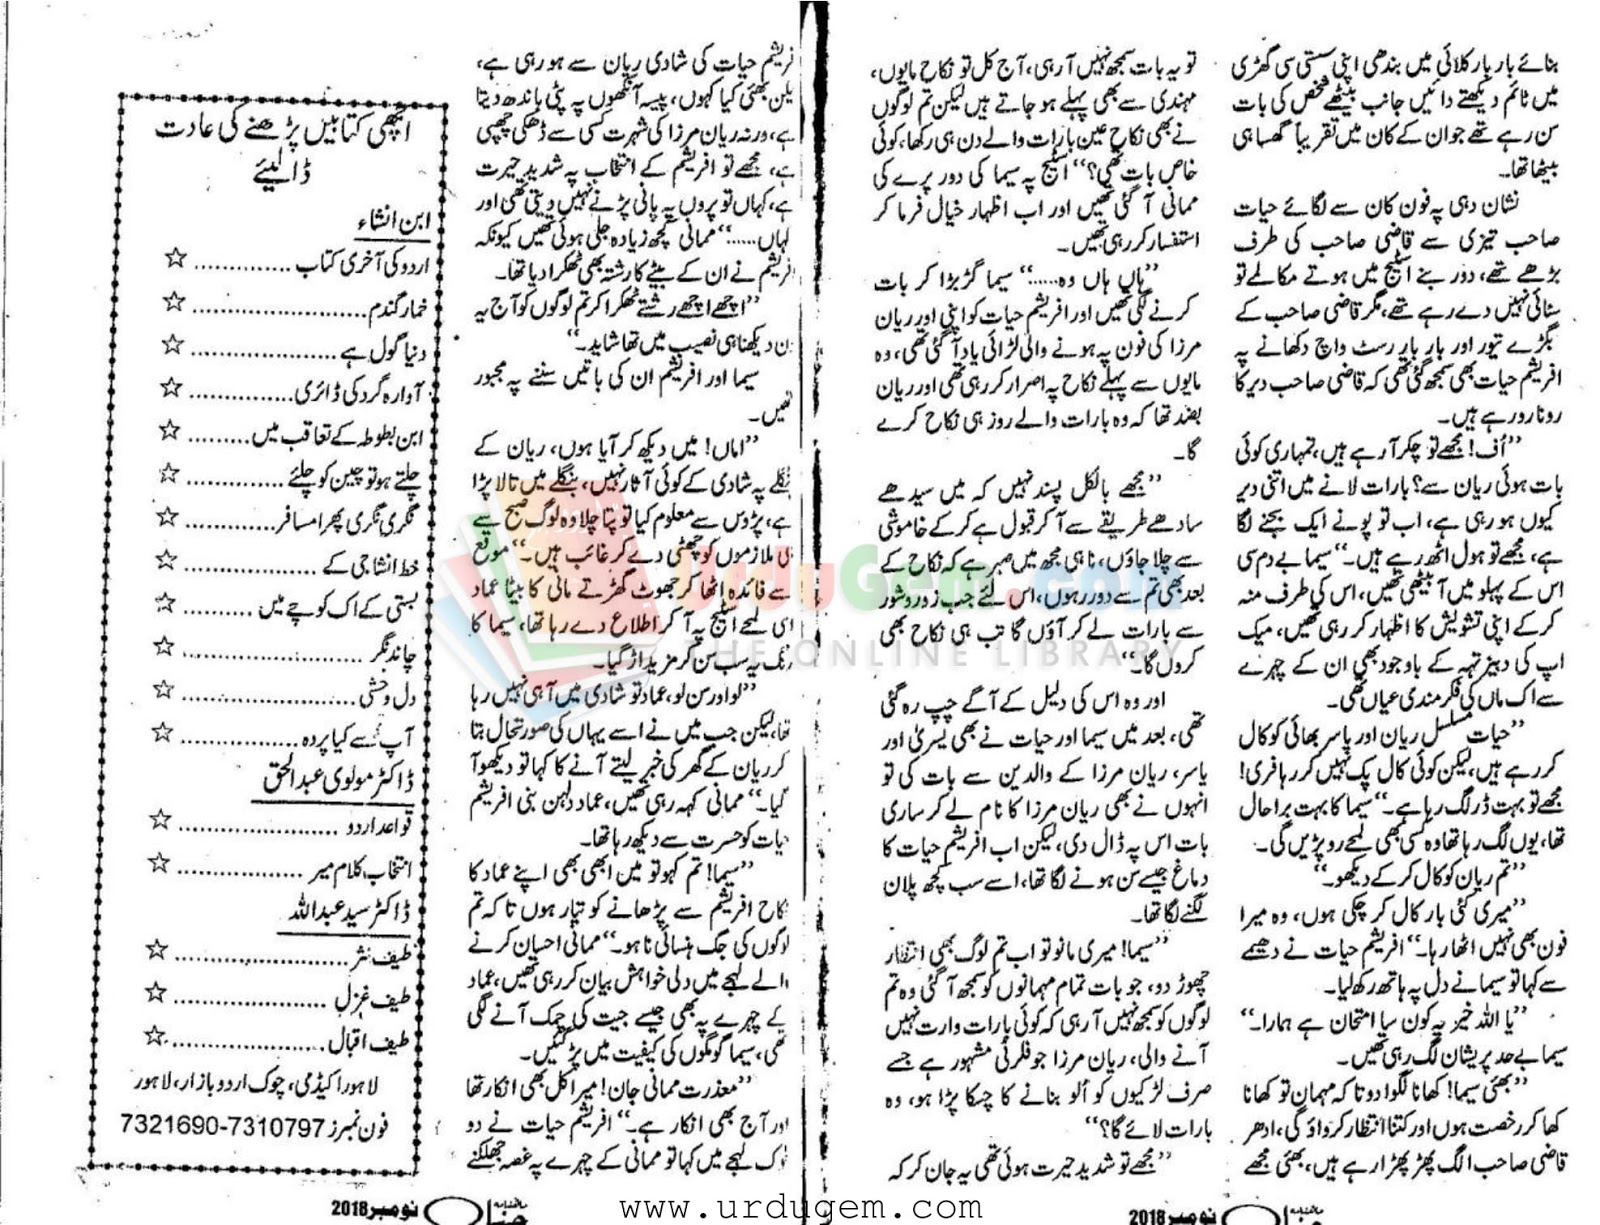 بنائے بار بار کلائی میں بندھی اپنی سستی سی گھڑی
میں ٹائم دیکھتے دائیں جانب بیٹھے شخص کی بات
سن رہے تھے جو ان کے کان میں تقریباً گھسا ہی
بیٹھا تھا۔
نشان دہی پہ فون کان سے لگائے حیات
صاحب تیزی سے قاضی صاحب کی طرف
بڑھے تھے، دور بنے اسٹیج میں ہوتے مکالمے تو
سنائی نہیں دے رہے تھے، مگر قاضی صاحب کے
بگڑے تیور اور بار بار رسٹ واچ دکھانے پہ
افریشم حیات بھی سمجھ گئی تھی کہ قاضی صاحب دیر کا
رونا رو رہے ہیں۔
”اُف! مجھے تو چکر آ رہے ہیں، تمہاری کوئی
بات ہوئی ریان سے؟ بارات لانے میں اتنی دیر
کیوں ہو رہی ہے، اب تو پونے ایک بجنے لگا
ہے، مجھے تو ہول اٹھ رہے ہیں۔“ سیما بے دم سی
اس کے پہلو میں آ بیٹھی تھیں، اس کی طرف منہ
کر کے اپنی تشویش کا اظہار کر رہی تھیں، میک
اپ کی دبیز تہہ کے باوجود بھی ان کے چہرے
سے اک ماں کی فکر مندی عیاں تھی۔
”حیات مسلسل ریان اور یاسر بھائی کو کال
کر رہے ہیں، لیکن کوئی کال پک نہیں کر رہا فری!
مجھے تو بہت ڈر لگ رہا ہے۔“ سیما کا بہت برا حال
تھا، یوں لگ رہا تھا وہ کسی بھی لمحے رو پڑیں گی۔
”تم ریان کو کال کر کے دیکھو۔“
”میری کئی بار کال کر چکی ہوں، وہ میرا
فون بھی نہیں اٹھا رہا۔“ افریشم حیات نے دھیمے
سے کہا تو سیما نے دل پہ ہاتھ رکھ لیا۔
”یا اللہ خیر یہ کون سا امتحان ہے ہمارا۔“
سیما بے حد پریشان لگ رہی تھیں۔
”بھئی سیما! کھانا لگوا دو تا کہ مہمان تو کھانا
کھا کر رخصت ہوں اور کتنا انتظار کرواؤ گی، ادھر
قاضی صاحب الگ پھڑ پھڑا رہے ہیں، بھئی مجھے
تو یہ بات سمجھ نہیں آ رہی، آج کل تو نکاح مایوں،
مہندی سے بھی پہلے ہو جاتے ہیں لیکن تم لوگوں
نے بھی نکاح عین بارات والے دن ہی رکھا، کوئی
خاص بات تھی؟“ اسٹیج پہ سیما کی دور پرے کی
ممانی آ گئی تھیں اور اب اظہار خیال فرما کر
استفسار کر رہی تھیں۔
”ہاں ہاں وہ......“ سیما گڑبڑا کر بات
کرنے لگی تھیں اور افریشم حیات کو اپنی اور ریان
مرزا کی فون پہ ہونے والی لڑائی یاد آ گئی تھی، وہ
مایوں سے پہلے نکاح پہ اصرار کر رہی تھی اور ریان
بضد تھا کہ وہ بارات والے روز ہی نکاح کرے
گا۔
”مجھے بالکل پسند نہیں کہ میں سیدھے
سادھے طریقے سے آ کر قبول ہے کر کے خاموشی
سے چلا جاؤں، نا ہی مجھ میں صبر ہے کہ نکاح کے
بعد بھی تم سے دور رہوں، اس لئے جب زور و شور
سے بارات لے کر آؤں گا تب ہی نکاح بھی
کروں گا۔“
اور وہ اس کی دلیل کے آگے چپ رہ گئی
تھی، بعد میں سیما اور حیات نے بھی یسریٰ اور
یاسر، ریان مرزا کے والدین سے بات کی تو
انہوں نے بھی ریان مرزا کا نام لے کر ساری
بات اس پہ ڈال دی، لیکن اب افریشم حیات کا
دماغ جیسے سن ہونے لگا تھا، اسے سب کچھ پلان
لگنے لگا تھا۔
”سیما! میری مانو تو اب تم لوگ بھی انتظار
چھوڑ دو، جو بات تمام مہمانوں کو سمجھ آ گئی وہ تم
لوگوں کو سمجھ نہیں آ رہی کہ کوئی بارات وارت نہیں
آنے والی، ریان مرزا جو فلرٹی مشہور ہے جسے
صرف لڑکیوں کو اُلو بنانے کا چسکا پڑا ہو، وہ
بارات لائے گا؟“
”مجھے تو شدید حیرت ہوئی تھی یہ جان کر کہ
ماہنامہ حنا نومبر 2018
فریشم حیات کی شادی ریان سے ہو رہی ہے،
یکن بھئی کیا کہوں، پیسہ آنکھوں پہ پٹی باندھ دیتا
ہے، ورنہ ریان مرزا کی شہرت کسی سے ڈھکی چھپی
ہے، مجھے تو افریشم کے انتخاب پہ شدید حیرت
ہے، کہاں تو پروں پہ پانی پڑنے نہیں دیتی تھی اور
کہاں......“ ممانی کچھ زیادہ جلی ہوئی تھیں کیونکہ
افریشم نے ان کے بیٹے کا رشتہ بھی ٹھکرا دیا تھا۔
”اچھے اچھے رشتے ٹھکرا کر تم لوگوں کو آج یہ
ن دیکھنا ہی نصیب میں تھا شاید۔“
سیما اور افریشم ان کی باتیں سننے پہ مجبور
تھیں۔
”اماں! میں دیکھ کر آیا ہوں، ریان کے
نگلے پہ شادی کے کوئی آثار نہیں، بنگلے میں تالا پڑا
ہے، پڑوس سے معلوم کیا تو پتا چلا وہ لوگ صبح سے
ی ملازموں کو چھٹی دے کر غائب ہیں۔“ موقع
سے فائدہ اٹھا کر جھوٹ گھڑتے مانی کا بیٹا عماد
اسی لمحے اسٹیج پہ آ کر اطلاع دے رہا تھا، سیما کا
رنگ یہ سب سن کر مزید اڑ گیا۔
”لو اور سن لو، عماد تو شادی میں آ ہی نہیں رہا
تھا، لیکن جب میں نے اسے یہاں کی صورتحال بتا
کر ریان کے گھر کی خبر لیتے آنے کا کہا تو دیکھو آ
گیا۔“ ممانی کہہ رہی تھیں، عماد دلہن بنی افریشم
حیات کو حسرت سے دیکھ رہا تھا۔
”سیما! تم کہو تو میں ابھی بھی اپنے عماد کا
نکاح افریشم سے پڑھانے کو تیار ہوں تا کہ تم
لوگوں کی جگ ہنسائی نا ہو۔“ ممانی احسان کرنے
والے لہجے میں دلی خواہش بیان کر رہی تھیں، عماد
کے چہرے پہ بھی جیسے جیت کی چمک آنے لگی
تھی، سیما گومگوں کی کیفیت میں پڑ گئیں۔
”معذرت ممانی جان! میرا کل بھی انکار تھا
اور آج بھی انکار ہے۔“ افریشم حیات نے دو
ٹوک لہجے میں کہا تو ممانی کے چہرے پہ غصہ جھلکنے
اچھی کتابیں پڑھنے کی عادت
ڈالیئے
ابن انشاء
اردو کی آخری کتاب .............. ☆
خمار گندم ......................... ☆
دنیا گول ہے ..................... ☆
آوارہ گرد کی ڈائری ............... ☆
ابن بطوطہ کے تعاقب میں ......... ☆
چلتے ہو تو چین کو چلئے .............. ☆
نگری نگری پھرا مسافر ............... ☆
خط انشا جی کے ................... ☆
بستی کے اک کوچے میں .......... ☆
چاند نگر .......................... ☆
دل وحشی ......................... ☆
آپ سے کیا پردہ ................. ☆
ڈاکٹر مولوی عبدالحق
قواعد اردو ....................... ☆
انتخاب کلام میر .................. ☆
ڈاکٹر سید عبداللہ
طیف نثر ......................... ☆
طیف غزل ...................... ☆
طیف اقبال ...................... ☆
لاہور اکیڈمی، چوک اردو بازار، لاہور
فون نمبرز 7310797-7321690
ماہنامہ حنا نومبر 2018
UrduGem.com
THE ONLINE LIBRARY
www.urdugem.com